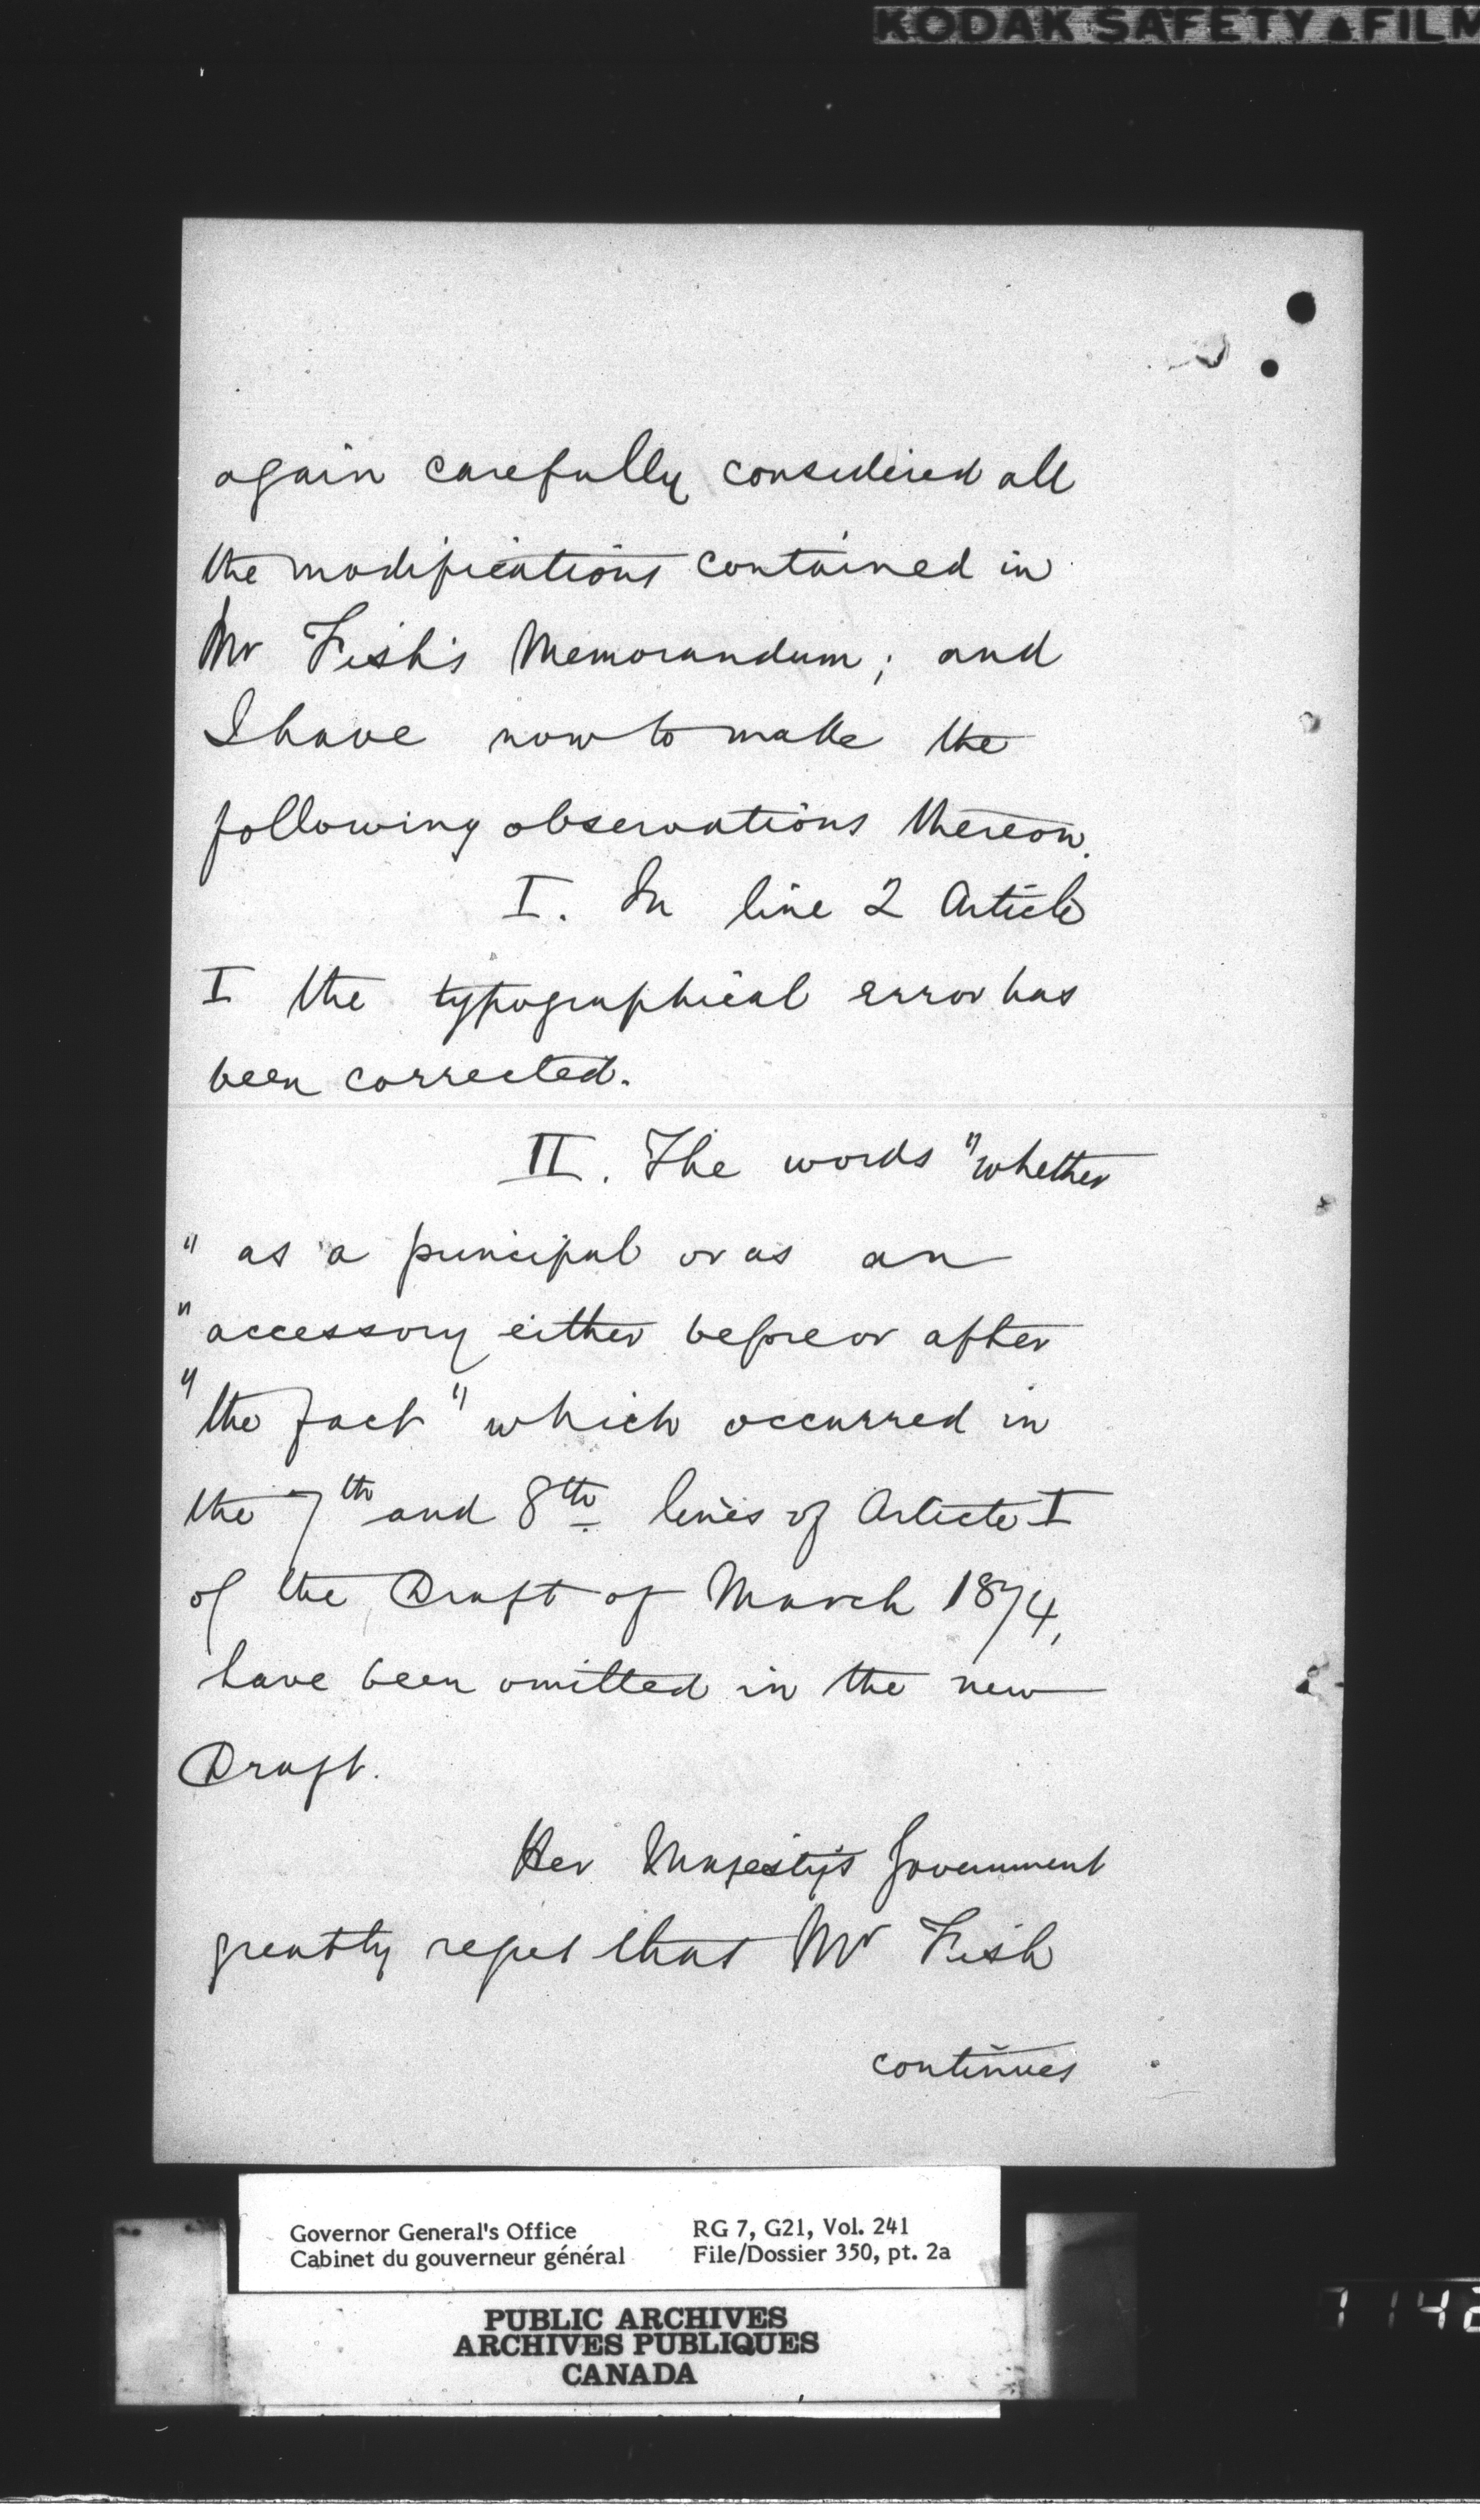 KODAK SAFETY ▲ FILM
again carefully considered all
the modifications contained in
Mr Fish's Memorandum; and
I have now to make the
following observations thereon.
I. In line 2 Article
I the typographical error has
been corrected.
II. The words "whether
" as a principal or as an
" accessory either before or after
" the fact" which occurred in
the 7th and 8th lines of Article I
of the Draft of March 1874,
have been omitted in the new
Draft.
Her Majesty's Government
greatly regret that Mr Fish
continues
Governor General's Office
Cabinet du gouverneur général
RG 7, G21, Vol. 241
File/Dossier 350, pt. 2a
PUBLIC ARCHIVES
ARCHIVES PUBLIQUES
CANADA